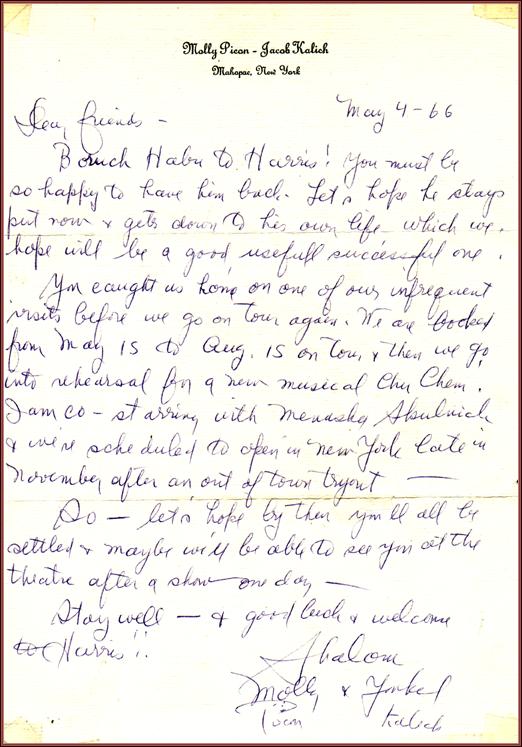 Molly Picon - Jacob Kalich
Mahopac, New York
May 4-66
Dear friends -
Boruch Habu to Harris! You must be
so happy to have him back. Let's hope he stays
put now & gets down to his own life which we
hope will be a good usefull successful one.
You caught us home on one of our infrequent
visits before we go on tour again. We are booked
from May 15 to Aug. 15 on tour & then we go
into rehearsal for a new musical Chu Chem.
I am co-starring with Menasha Skulnick
& we're scheduled to open in New York late in
November after an out of town tryout —
So — let's hope by then you'll all be
settled & maybe we'll be able to see you at the
theatre after a show one day —
Stay well — & good luck & welcome
to Harris!!
Shalom
Molly & Yonkel
Picon Kalich